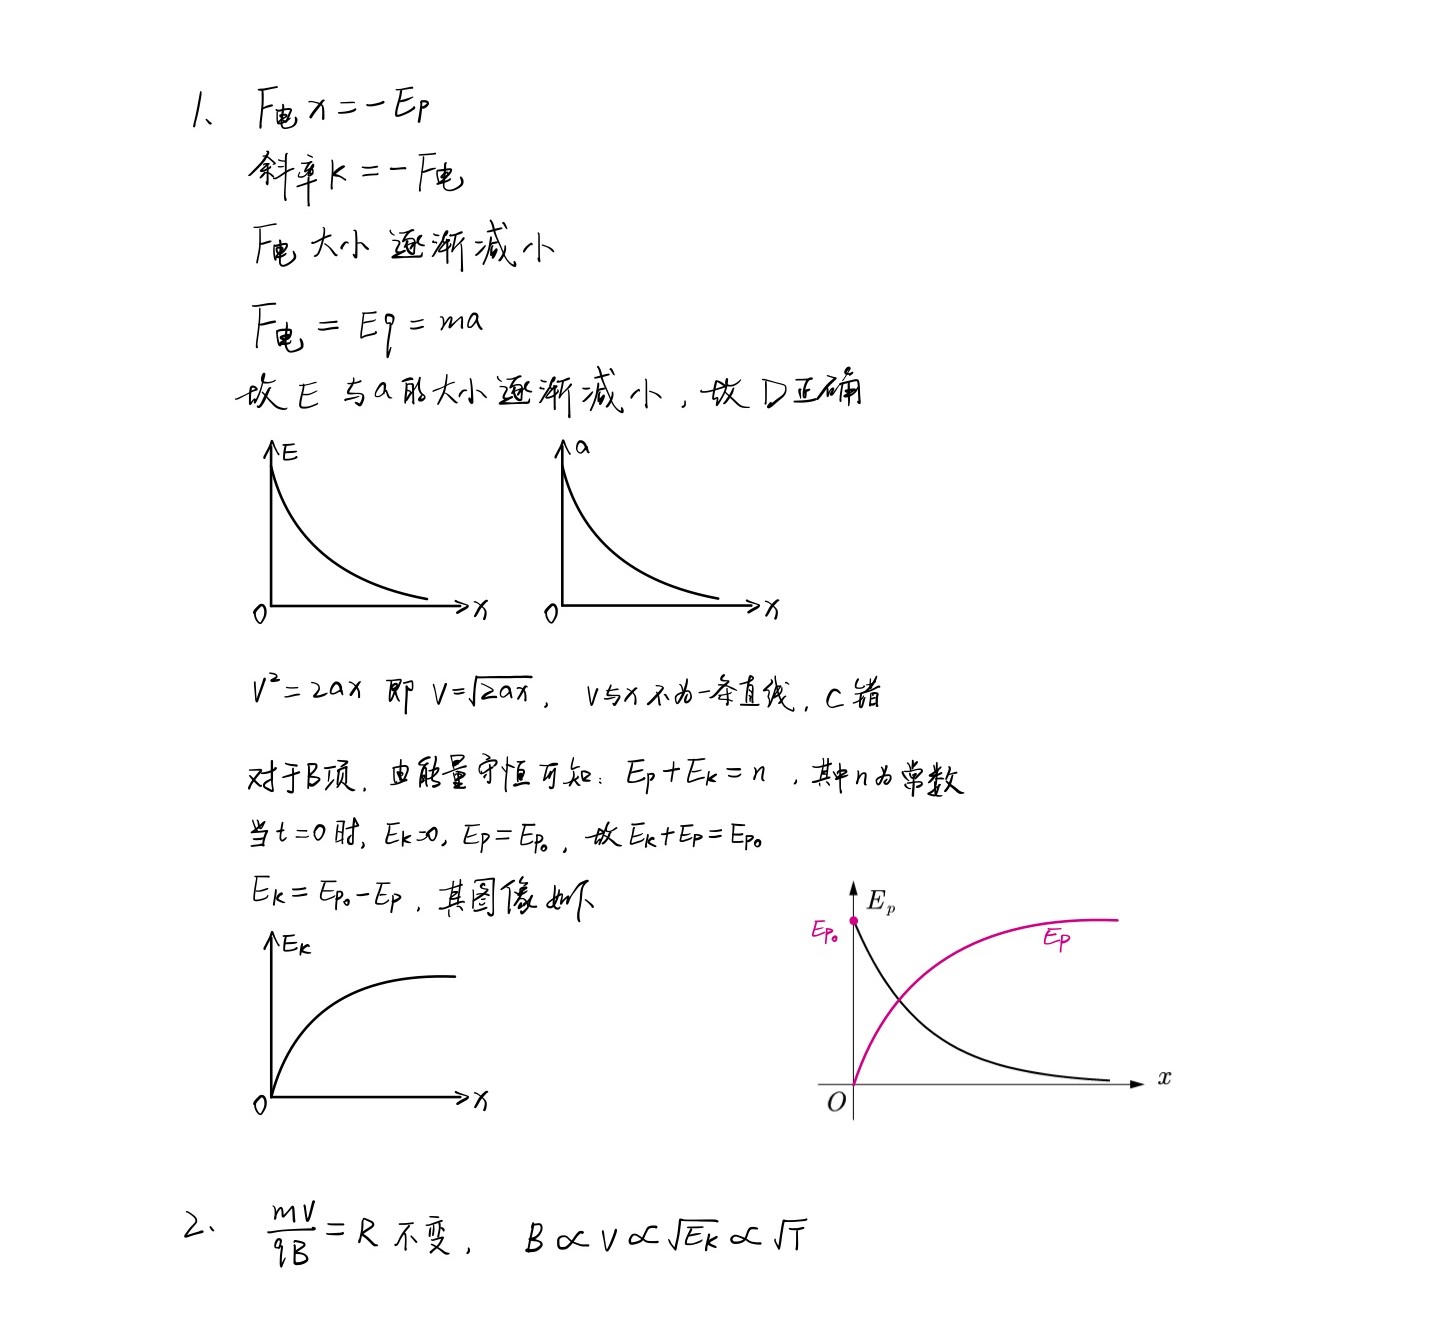 1、 F电x=-Ep
斜率k=-F电
F电大小逐渐减小
F电=Eq=ma
故E与a的大小逐渐减小,故D正确
E
a
O x
O x
v²=2ax 即 v=√2ax, v与x不为一条直线,C错
对于B项,由能量守恒可知:Ep+Ek=n,其中n为常数
当t=0时,Ek=0,Ep=Ep₀,故Ek+Ep=Ep₀
Ek=Ep₀-Ep,其图像如下
Ek
O x
Ep
Ep₀
Ep
O x
2、 mv/qB=R不变, B∝v∝√Ek∝√T